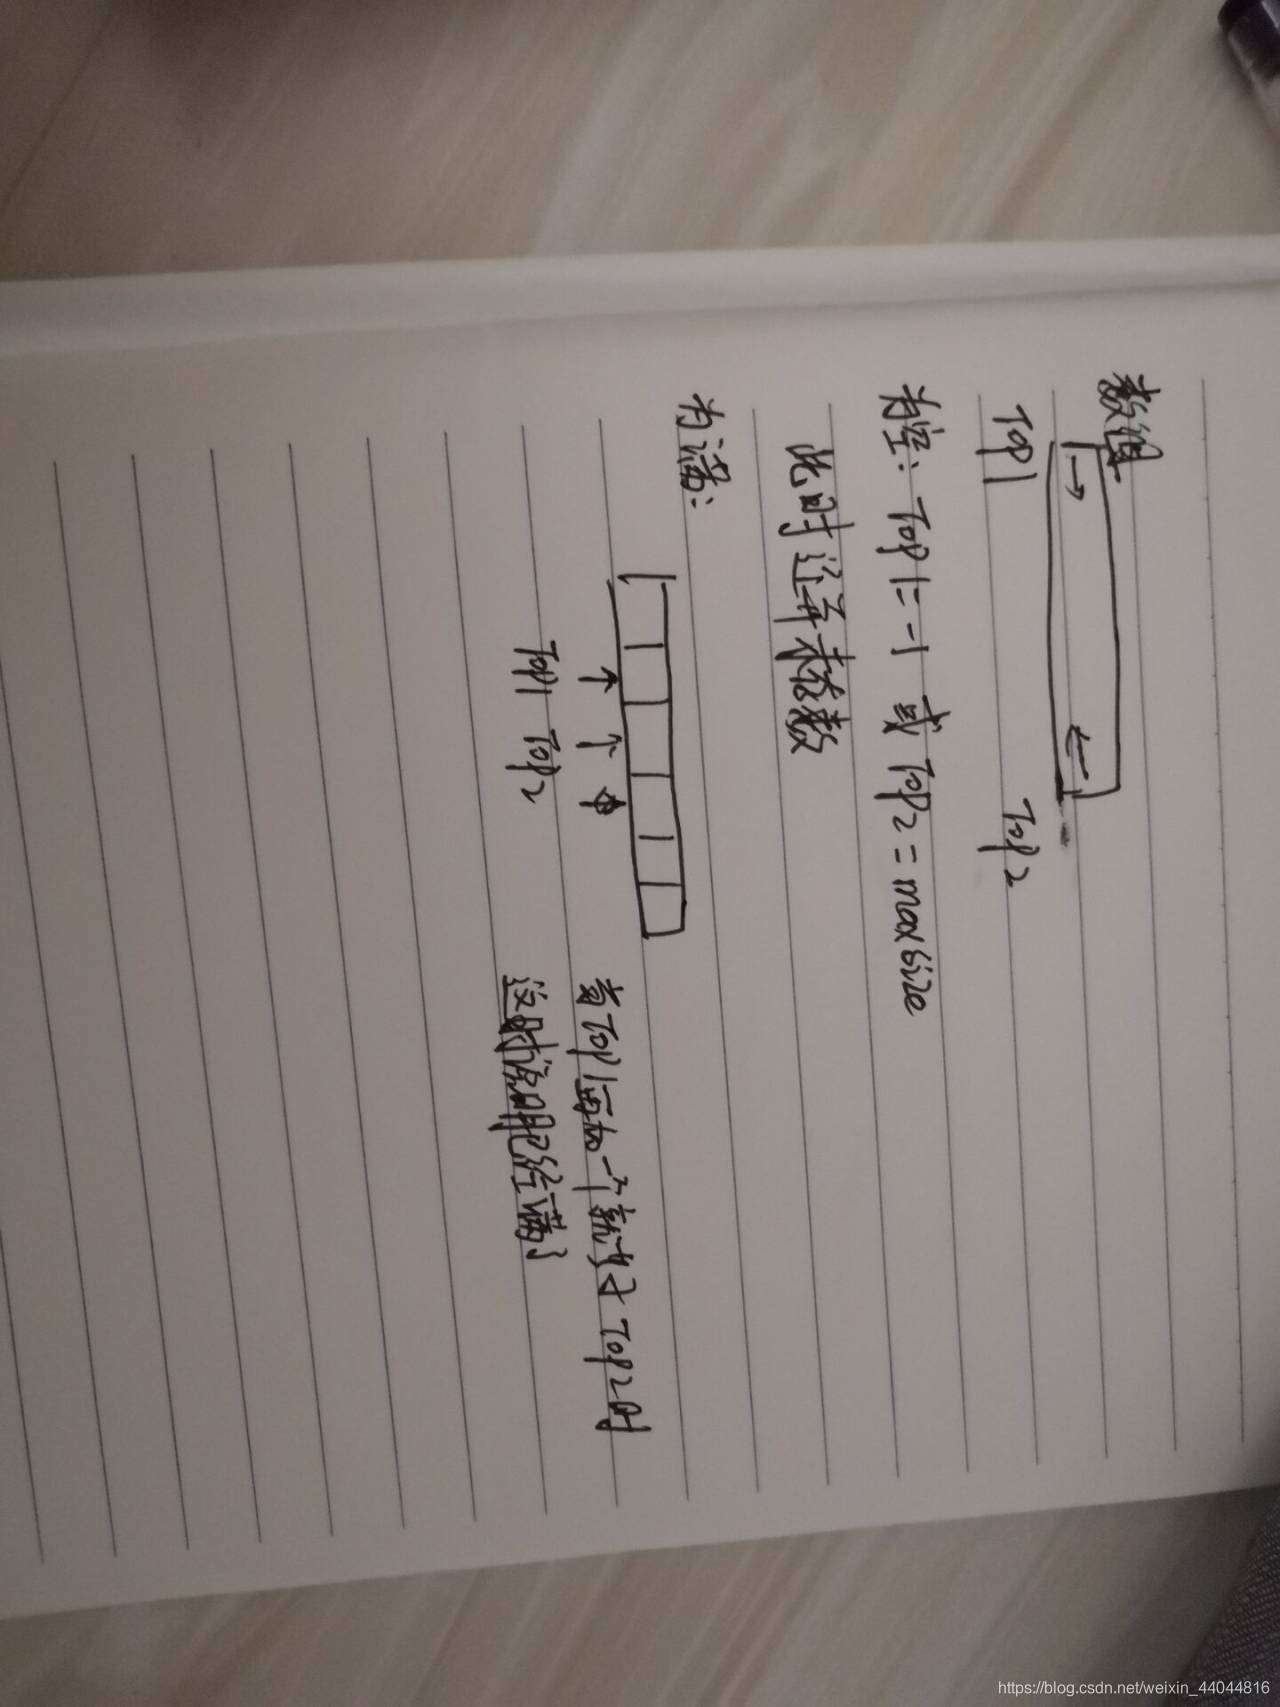 数组
Top1 Top2
为空: Top1=-1 或 Top2=maxsize
此时还并未存数
为满:
Top1 Top2
当Top1再加一个就等于Top2时
这时说明已经满了
https://blog.csdn.net/weixin_44044816